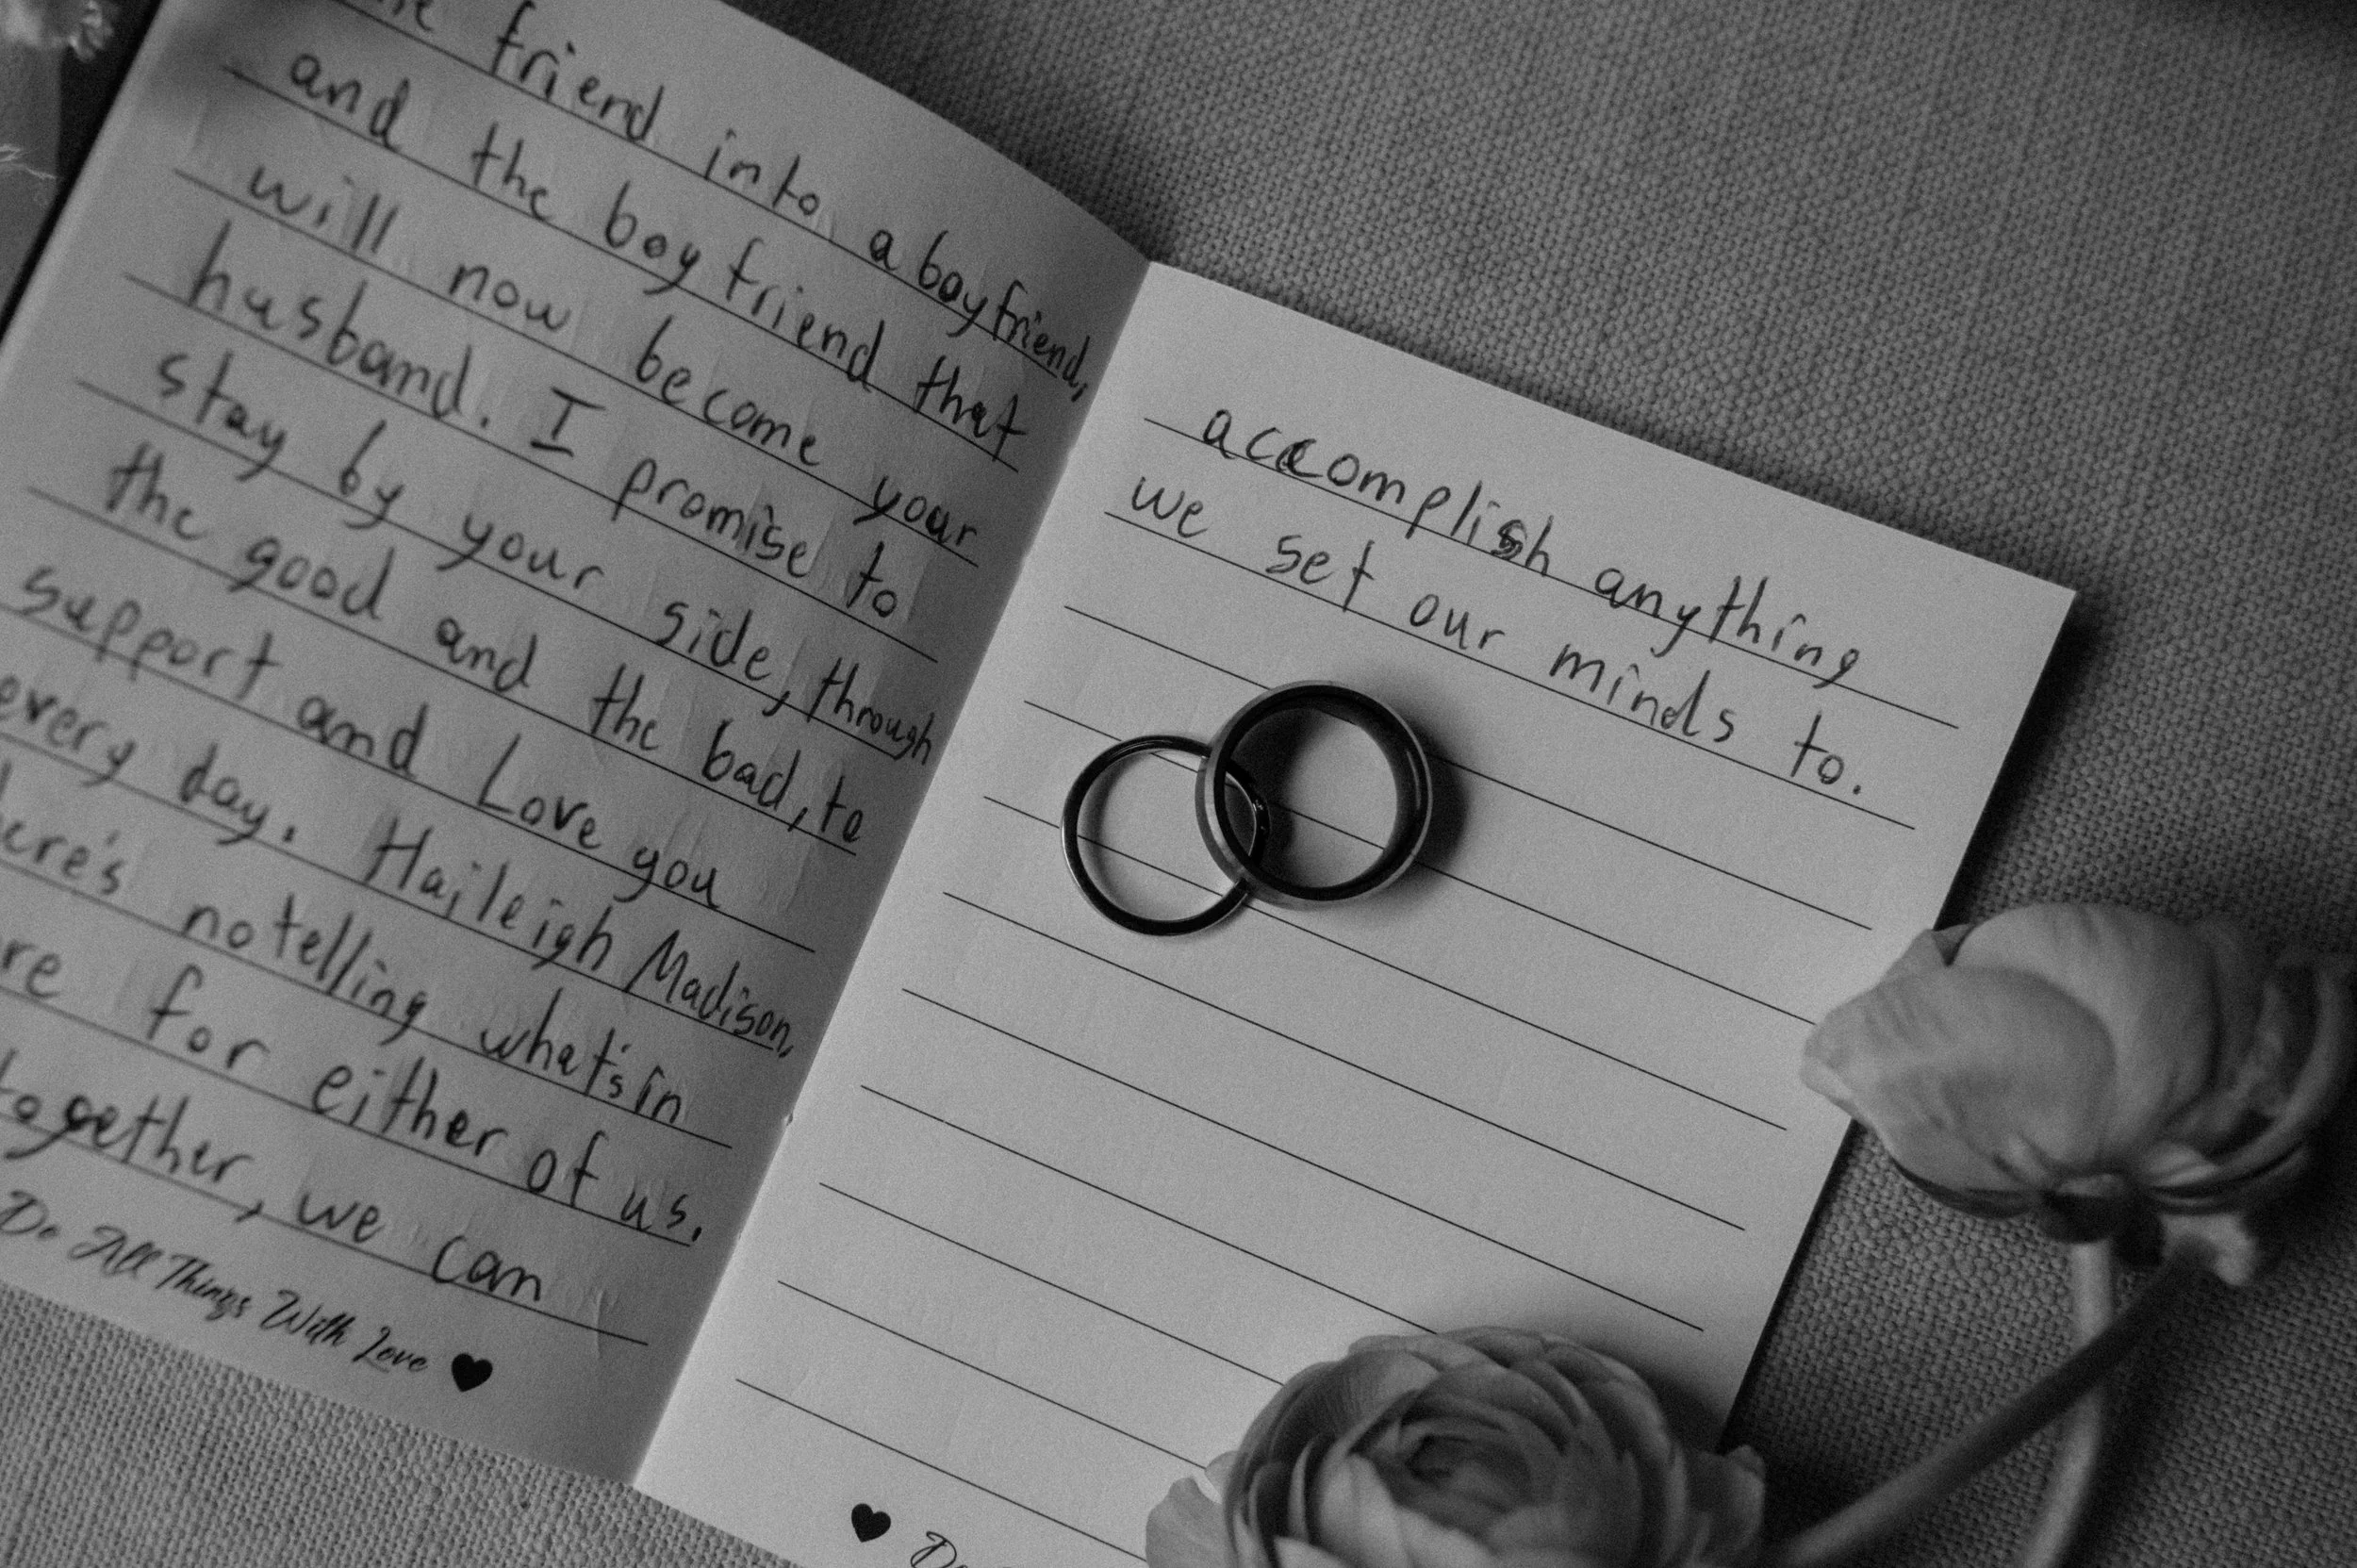 friend into a boyfriend,
and the boyfriend that
will now become your
husband. I promise to
stay by your side, through
the good and the bad, to
support and Love you
every day. Haileigh Madison,
no telling what's in
for either of us.
together, we can
Do All Things With Love ♥
accomplish anything
we set our minds to.
♥